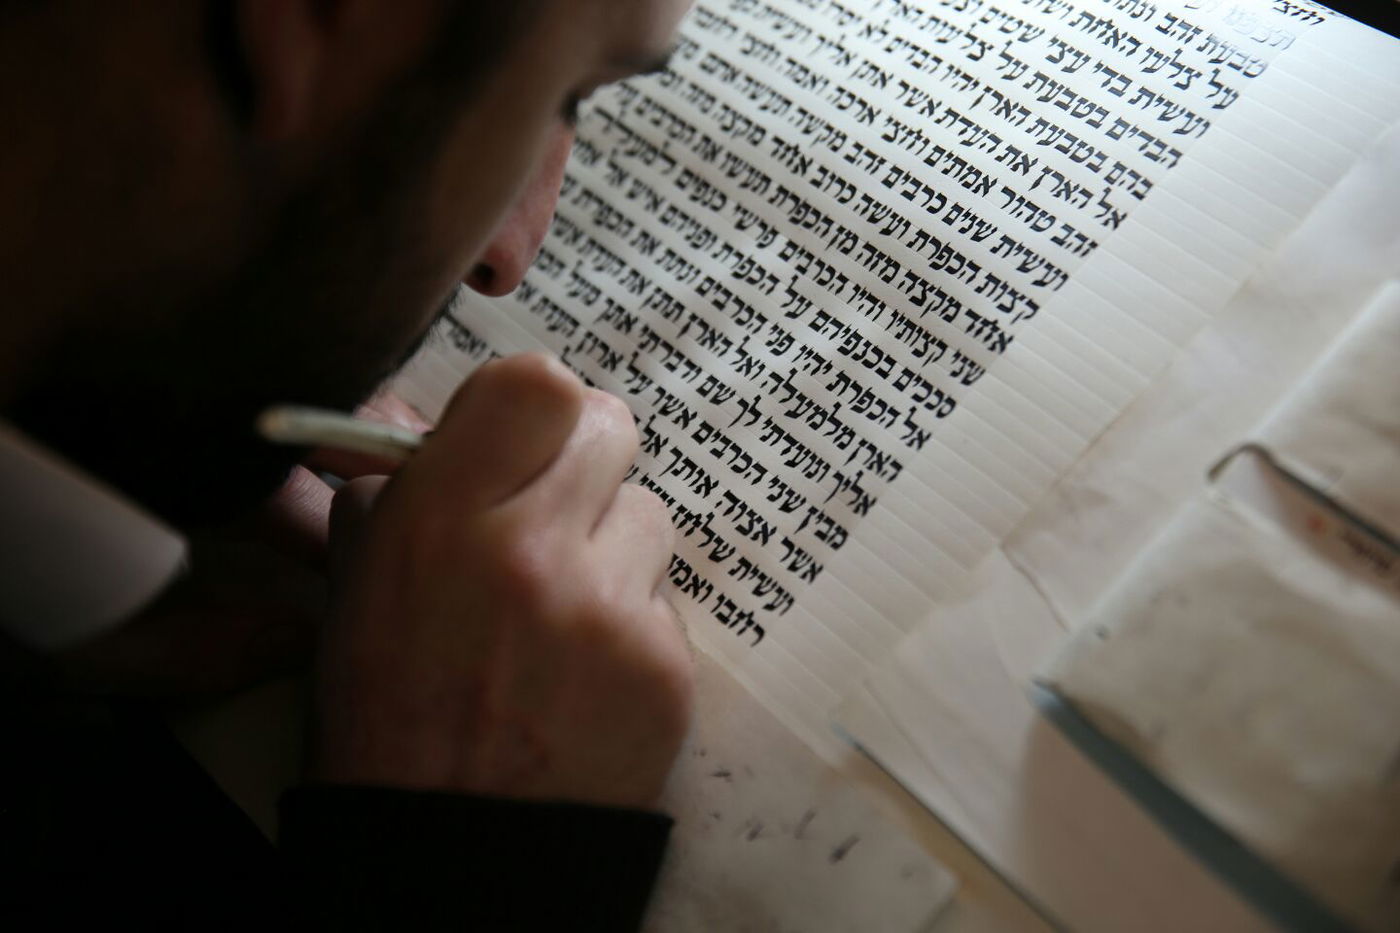 וחצי
טבעת זהב ונתת
על צלעו האחת
ועשית בדי עצי שטים
הבדים בטבעת על צלעת הארן
בהם בטבעת הארן יהיו הבדים לא יסרו
אל הארן את העדת אשר אתן אליך ועשית
זהב טהור אמתים וחצי ארכה ואמה וחצי רחבה
ועשית שנים כרבים זהב מקשה תעשה אתם
קצות הכפרת ועשה כרוב אחד מקצה מזה
אחד מקצה מזה מן הכפרת תעשו את הכרבים
שני קצותיו והיו הכרבים פרשי כנפים למעלה
סככים בכנפיהם על הכפרת ופניהם איש אל
אל הכפרת יהיו פני הכרבים ונתת את הכפרת
הארן מלמעלה ואל הארן תתן את העדת אשר
אליך ונועדתי לך שם ודברתי אתך מעל
מבין שני הכרבים אשר על ארון העדת
אשר אצוה אותך אל
ועשית שלחן
רחבו